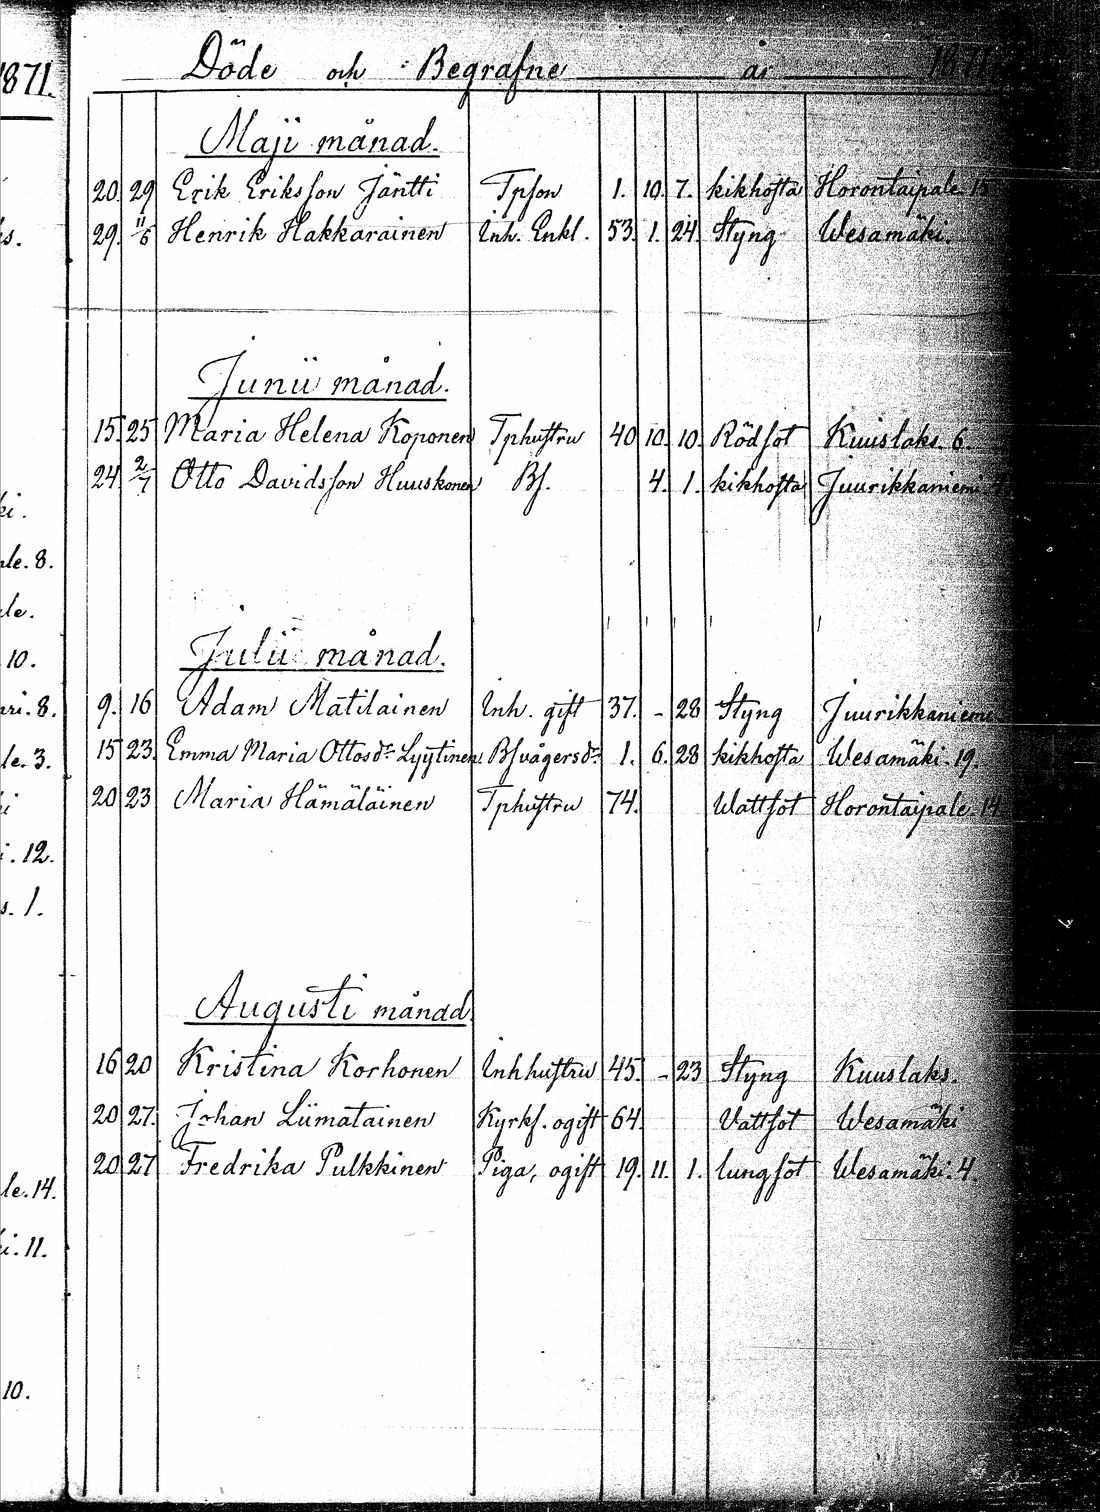 1871.
Döde och Begrafne år 187
Maji månad.
20. 29 Erik Eriksson Jäntti Tpson 1. 10. 7. kikhosta Horontaipale 15
29. 11/6 Henrik Hakkarainen Inh. Enkl. 53. 1. 24. Styng Wesamäki.
Junii månad.
15. 25 Maria Helena Koponen Tphustru 40 10. 10. Rödsot Kuuslaks. 6.
24. 2/7 Otto Davidsson Huuskonen Bs. 4. 1. kikhosta Juurikkaniemi
Julii månad.
9. 16 Adam Matilainen Inh. gift 37. - 28 Styng Juurikkaniemi
15 23. Emma Maria Ottosdr. Lyytinen. Bsvågersdr. 1. 6. 28 kikhosta Wesamäki. 19.
20 23 Maria Hämäläinen Tphustru 74. Wattsot Horontaipale. 14
Augusti månad
16 20 Kristina Korhonen Inhhustru 45. - 23 Styng Kuuslaks.
20 27. Johan Liimatainen Kyrkf. ogift 64. Vattsot Wesamäki
20 27 Fredrika Pulkkinen Piga, ogift 19. 11. 1. lungsot Wesamäki. 4.
s.
ki.
ale. 8.
le.
10.
ri. 8.
le. 3.
i
i. 12.
s. 1.
le. 14.
i. 11.
10.